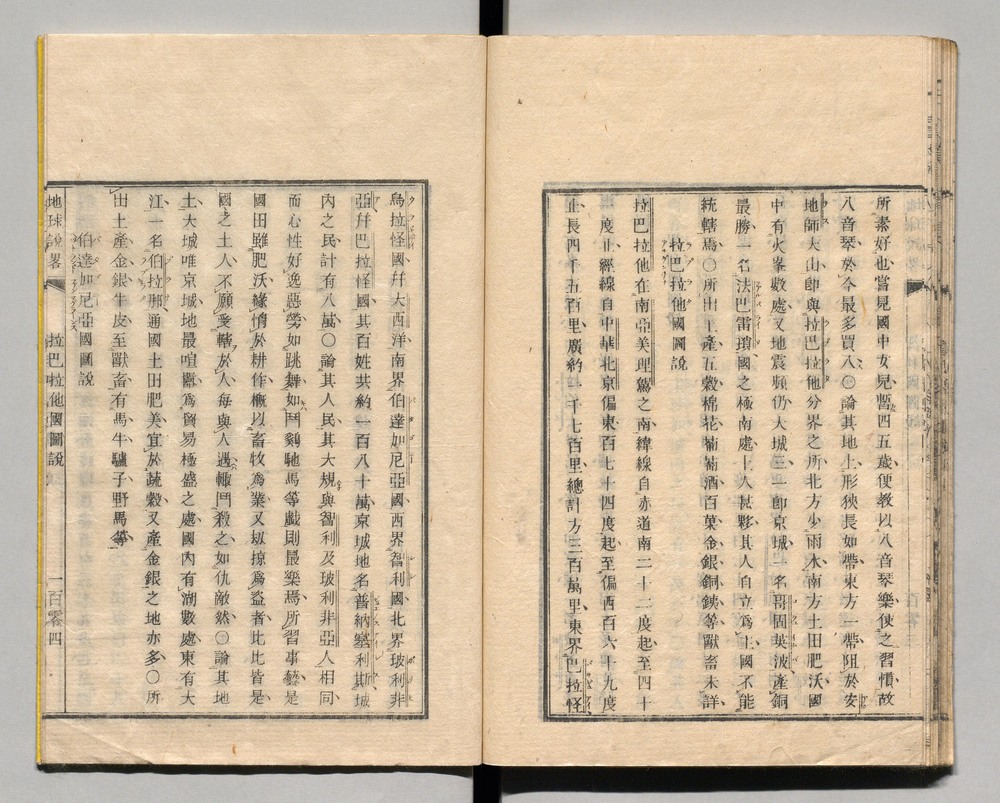 所素好也嘗見國中女兒暫四五歲便教以八音琴樂使之習慣故
八音琴於今最多買八〇論其地土形狹長如帶東方一帶阻於安
地師大山即與拉巴拉他分界之所北方少雨水南方土田肥沃國
中有火峯數處又地震頻仍大城三一即京城一名哥固英波產銅
最勝一名法巴雷瑣國之極南處土人甚夥其人自立爲主國不能
統轄焉〇所出土產五穀棉花葡萄酒百菓金銀銅鐵等獸畜未詳
拉巴拉他國圖說
拉巴拉他在南亞美理駕之南緯線自赤道南二十二度起至四十
一度止經線自中華北京偏東百七十四度起至偏西百六十九度
止長四千五百里廣約三千七百里總計方三百萬里東界巴拉怪
烏拉怪國幷大西洋南界伯達加尼亞國西界智利國北界玻利非
亞幷巴拉怪國其百姓共約一百八十萬京城地名普納塞利斯其城
內之民計有八萬〇論其人民其大規與智利及玻利非亞人相同
而心性好逸惡勞如跳舞如鬥鷄馳馬等戲則最樂焉所習事藝是
國田雖肥沃緣惰於耕作槪以畜牧爲業又刼掠爲盜者比比皆是
國之土人不願受轄於人每與人遇輒鬥殺之如仇敵然〇論其地
土大城唯京城地最喧嚻爲貿易極盛之處國內有湖數處東有大
江一名伯拉那通國土田肥美宜於蔬穀又產金銀之地亦多〇所
出土產金銀牛皮至獸畜有馬牛驢子野馬等
伯達加尼亞國圖說
地球說畧 拉巴啦他國圖說 一百零四